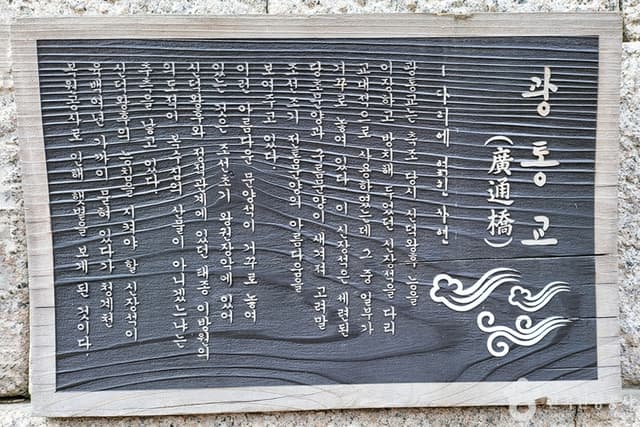 광통교
(廣通橋)
- 다리에 얽힌 사연
광통교는 축조 당시 신덕왕후 능을
이장하고 방치해 두었던 신장석을 다리
교대석으로 사용하였는데 그 중 일부가
거꾸로 놓여 있다. 이 신장석은 세련된
당초문양과 구름문양이 새겨져 고려말
조선초기 전통문양의 아름다움을
보여주고 있다.
이런 아름다운 문양석이 거꾸로 놓여
있는 것은 조선초기 왕권장악에 있어
신덕왕후와 정적관계에 있던 태종 이방원의
의도적인 복수심의 산물이 아니겠느냐는
추측을 낳고 있다.
신덕왕후의 능침을 지켜야 할 신장석이
육백여년 가까이 묻혀 있다가 청계천
복원공사로 인해 햇볕을 보게 된 것이다.